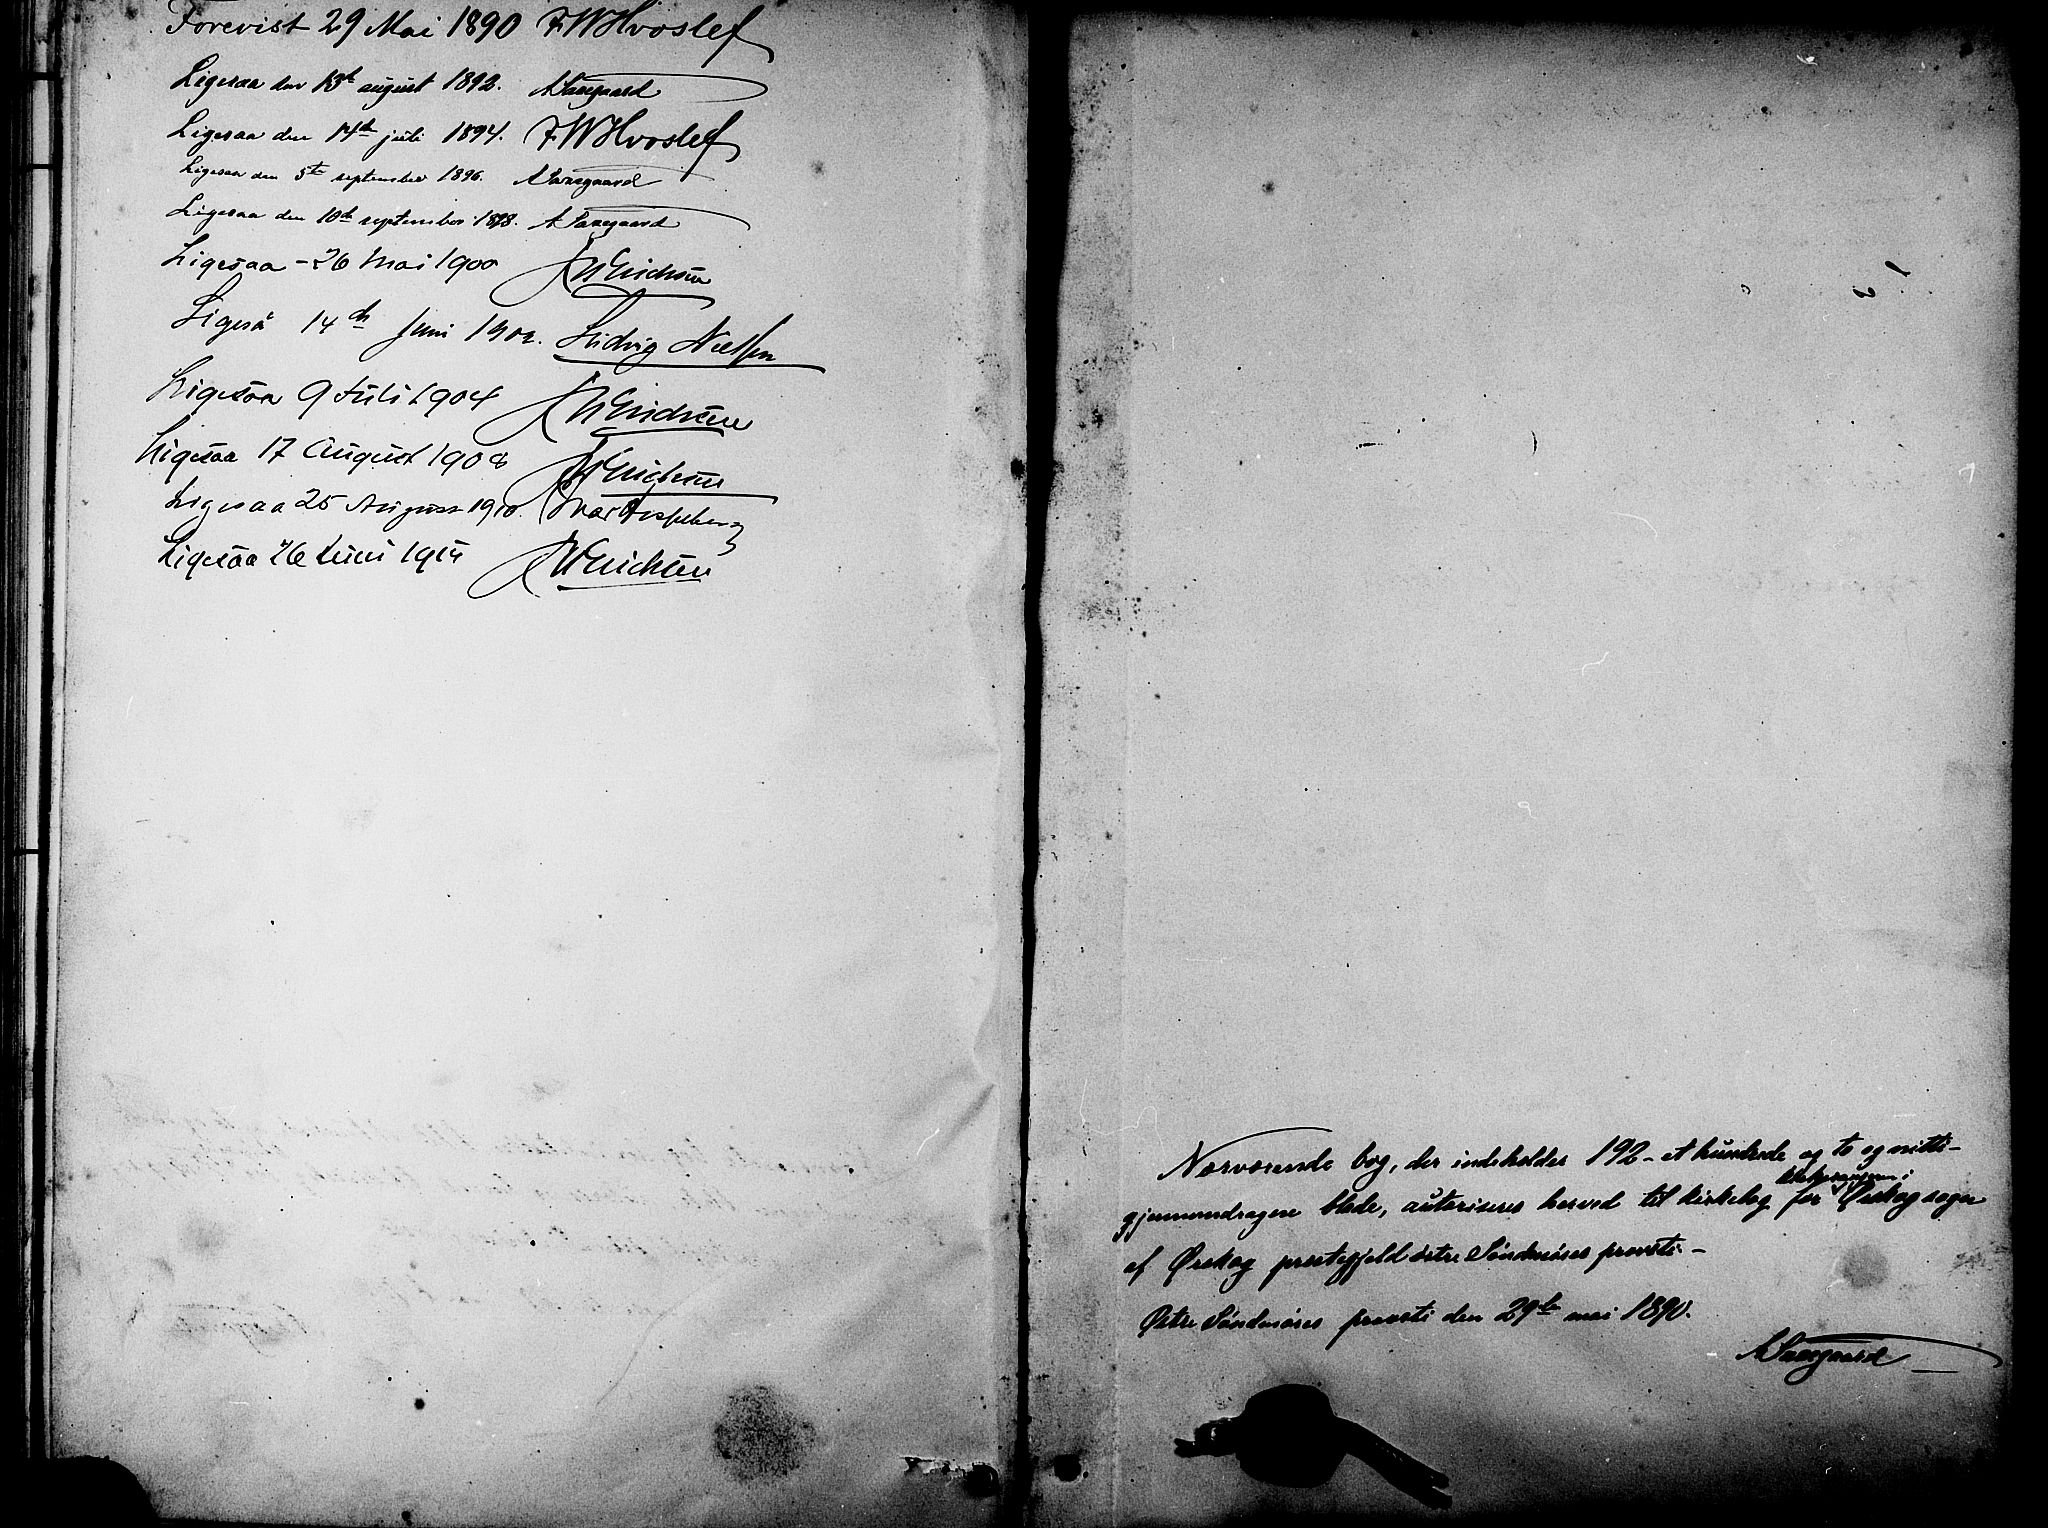 Forevist 29 Mai 1890 FWHvoslef
Ligesaa den 13de august 1892. ASaxegaard
Ligesaa den 14de juli 1894. FWHvoslef
Ligesaa den 5te september 1896. ASaxegaard
Ligesaa den 10de september 1898. ASaxegaard
Ligesaa - 26 Mai 1900 Erichsen
Ligeså 14de Juni 1902. Ludvig Nielsen
Ligesaa 9 Juli 1904 Erichsen
Ligesaa 17 August 1908 Erichsen
Ligesaa 25 August 1910.
Ligesaa 26 Juni Erichsen
Nærværende bog, der indeholder 192 - et hundrede og to og nitti -
klokkeren i
gjennemdragne blade, autoriseres herved til kirkebog for Ørskog sogn
af Ørskog prestegjeld østre Søndmøres provsti -
Østre Søndmøres provsti den 29de mai 1890.
ASaxegaard